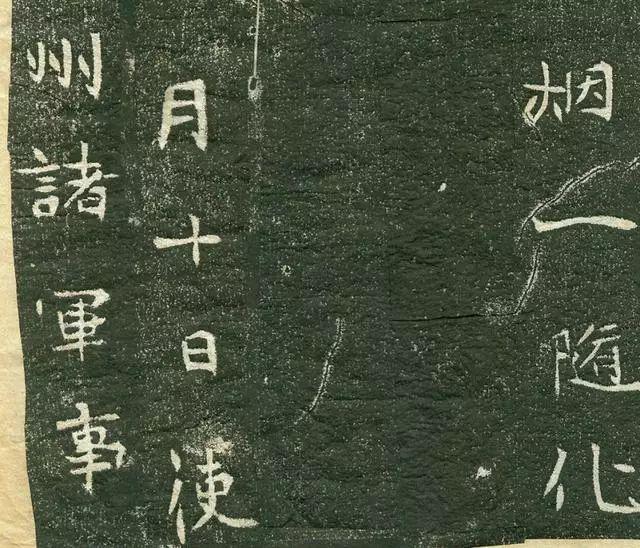 栶一随化
月十日使
州諸軍事